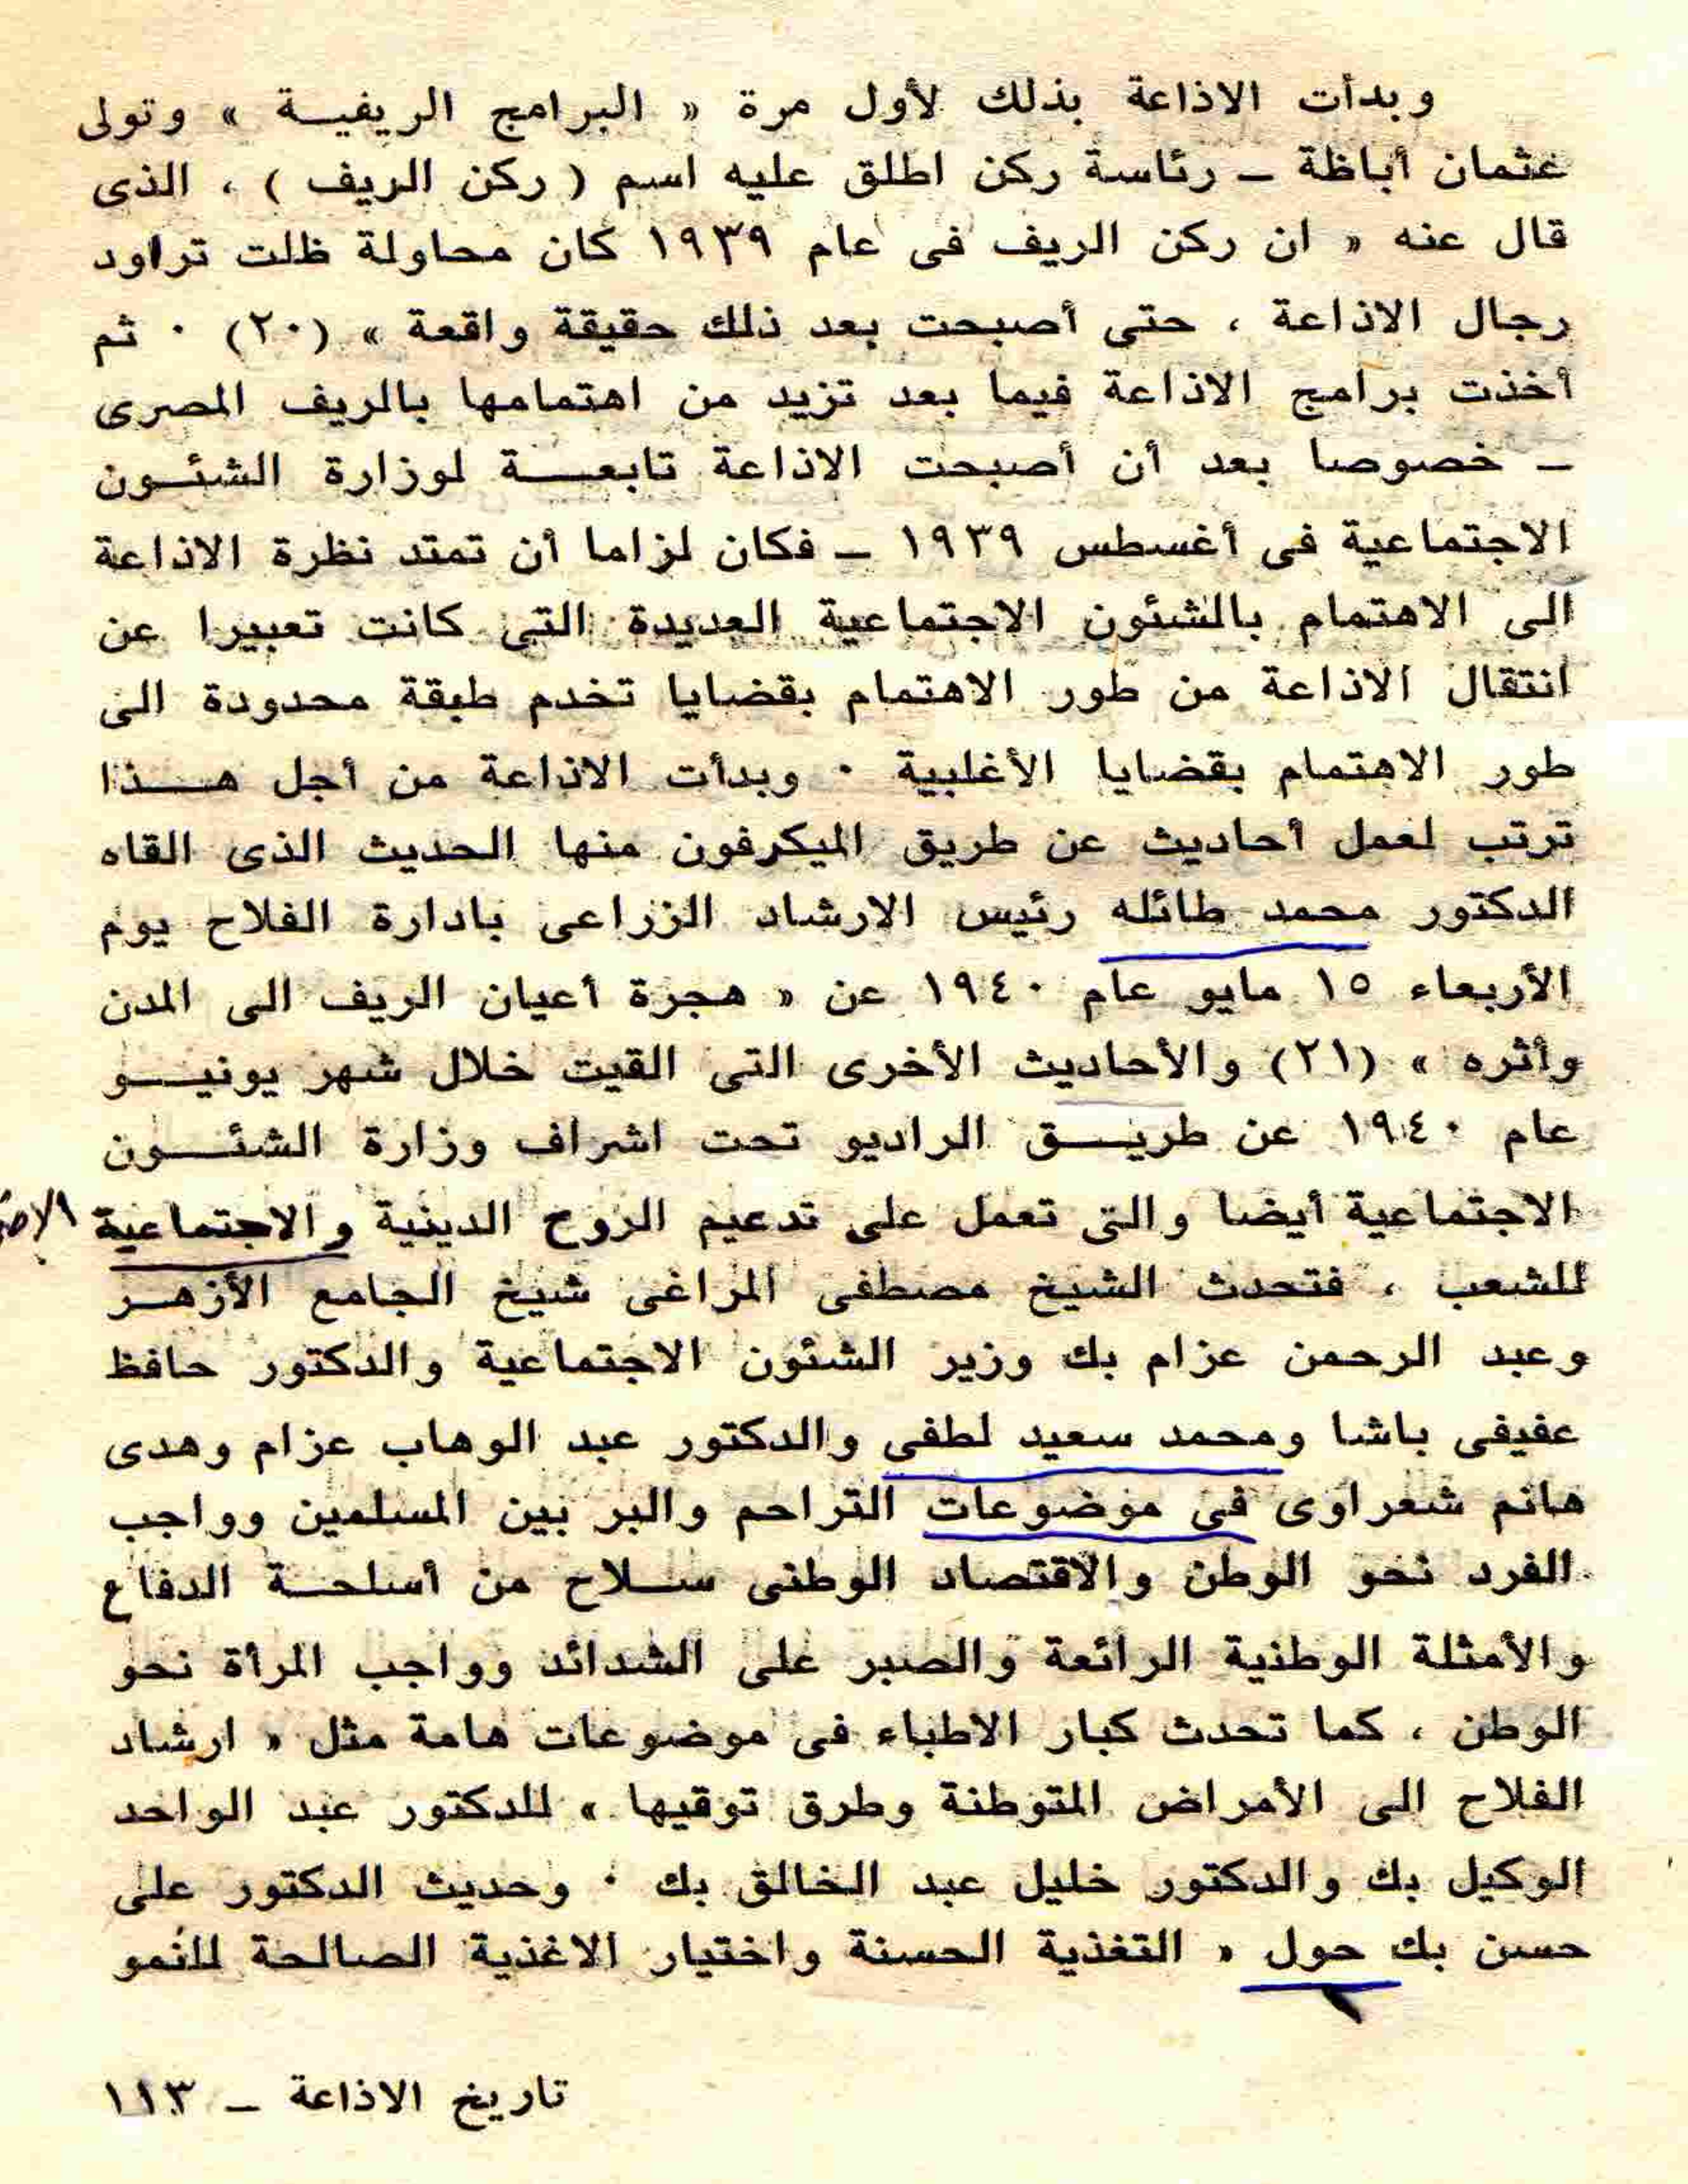 وبدأت الاذاعة بذلك لأول مرة « البرامج الريفيـــة » وتولى
عثمان أباظة ـ رئاسة ركن اطلق عليه اسم ( ركن الريف ) ، الذى
قال عنه « ان ركن الريف فى عام ١٩٣٩ كان محاولة ظلت تراود
رجال الاذاعة ، حتى أصبحت بعد ذلك حقيقة واقعة » (٢٠) ٠ ثم
أخذت برامج الاذاعة فيما بعد تزيد من اهتمامها بالريف المصرى
ـ خصوصا بعد أن أصبحت الاذاعة تابعـــة لوزارة الشئـــون
الاجتماعية فى أغسطس ١٩٣٩ ـ فكان لزاما أن تمتد نظرة الاذاعة
الى الاهتمام بالشئون الاجتماعية العديدة التى كانت تعبيرا عن
انتقال الاذاعة من طور الاهتمام بقضايا تخدم طبقة محدودة الى
طور الاهتمام بقضايا الأغلبية ٠ وبدأت الاذاعة من أجل هـــذا
ترتب لعمل أحاديث عن طريق الميكرفون منها الحديث الذى القاه
الدكتور محمد طائله رئيس الارشاد الزراعى بادارة الفلاح يوم
الأربعاء ١٥ مايو عام ١٩٤٠ عن « هجرة أعيان الريف الى المدن
وأثره » (٢١) والأحاديث الأخرى التى القيت خلال شهر يونيـــو
عام ١٩٤٠ عن طريـــق الراديو تحت اشراف وزارة الشئـــون
الاجتماعية أيضا والتى تعمل على تدعيم الروح الدينية والاجتماعية
للشعب ، فتحدث الشيخ مصطفى المراغى شيخ الجامع الأزهـــر
وعبد الرحمن عزام بك وزير الشئون الاجتماعية والدكتور حافظ
عفيفى باشا ومحمد سعيد لطفى والدكتور عبد الوهاب عزام وهدى
هانم شعراوى فى موضوعات التراحم والبر بين المسلمين وواجب
الفرد نحو الوطن والاقتصاد الوطنى ســـلاح من أسلحـــة الدفاع
والأمثلة الوطنية الرائعة والصبر على الشدائد وواجب المرأة نحو
الوطن ، كما تحدث كبار الاطباء فى موضوعات هامة مثل « ارشاد
الفلاح الى الأمراض المتوطنة وطرق توقيها » للدكتور عبد الواحد
الوكيل بك والدكتور خليل عبد الخالق بك ٠ وحديث الدكتور على
حسن بك حول « التغذية الحسنة واختيار الاغذية الصالحة للنمو
تاريخ الاذاعة ـ ١١٣